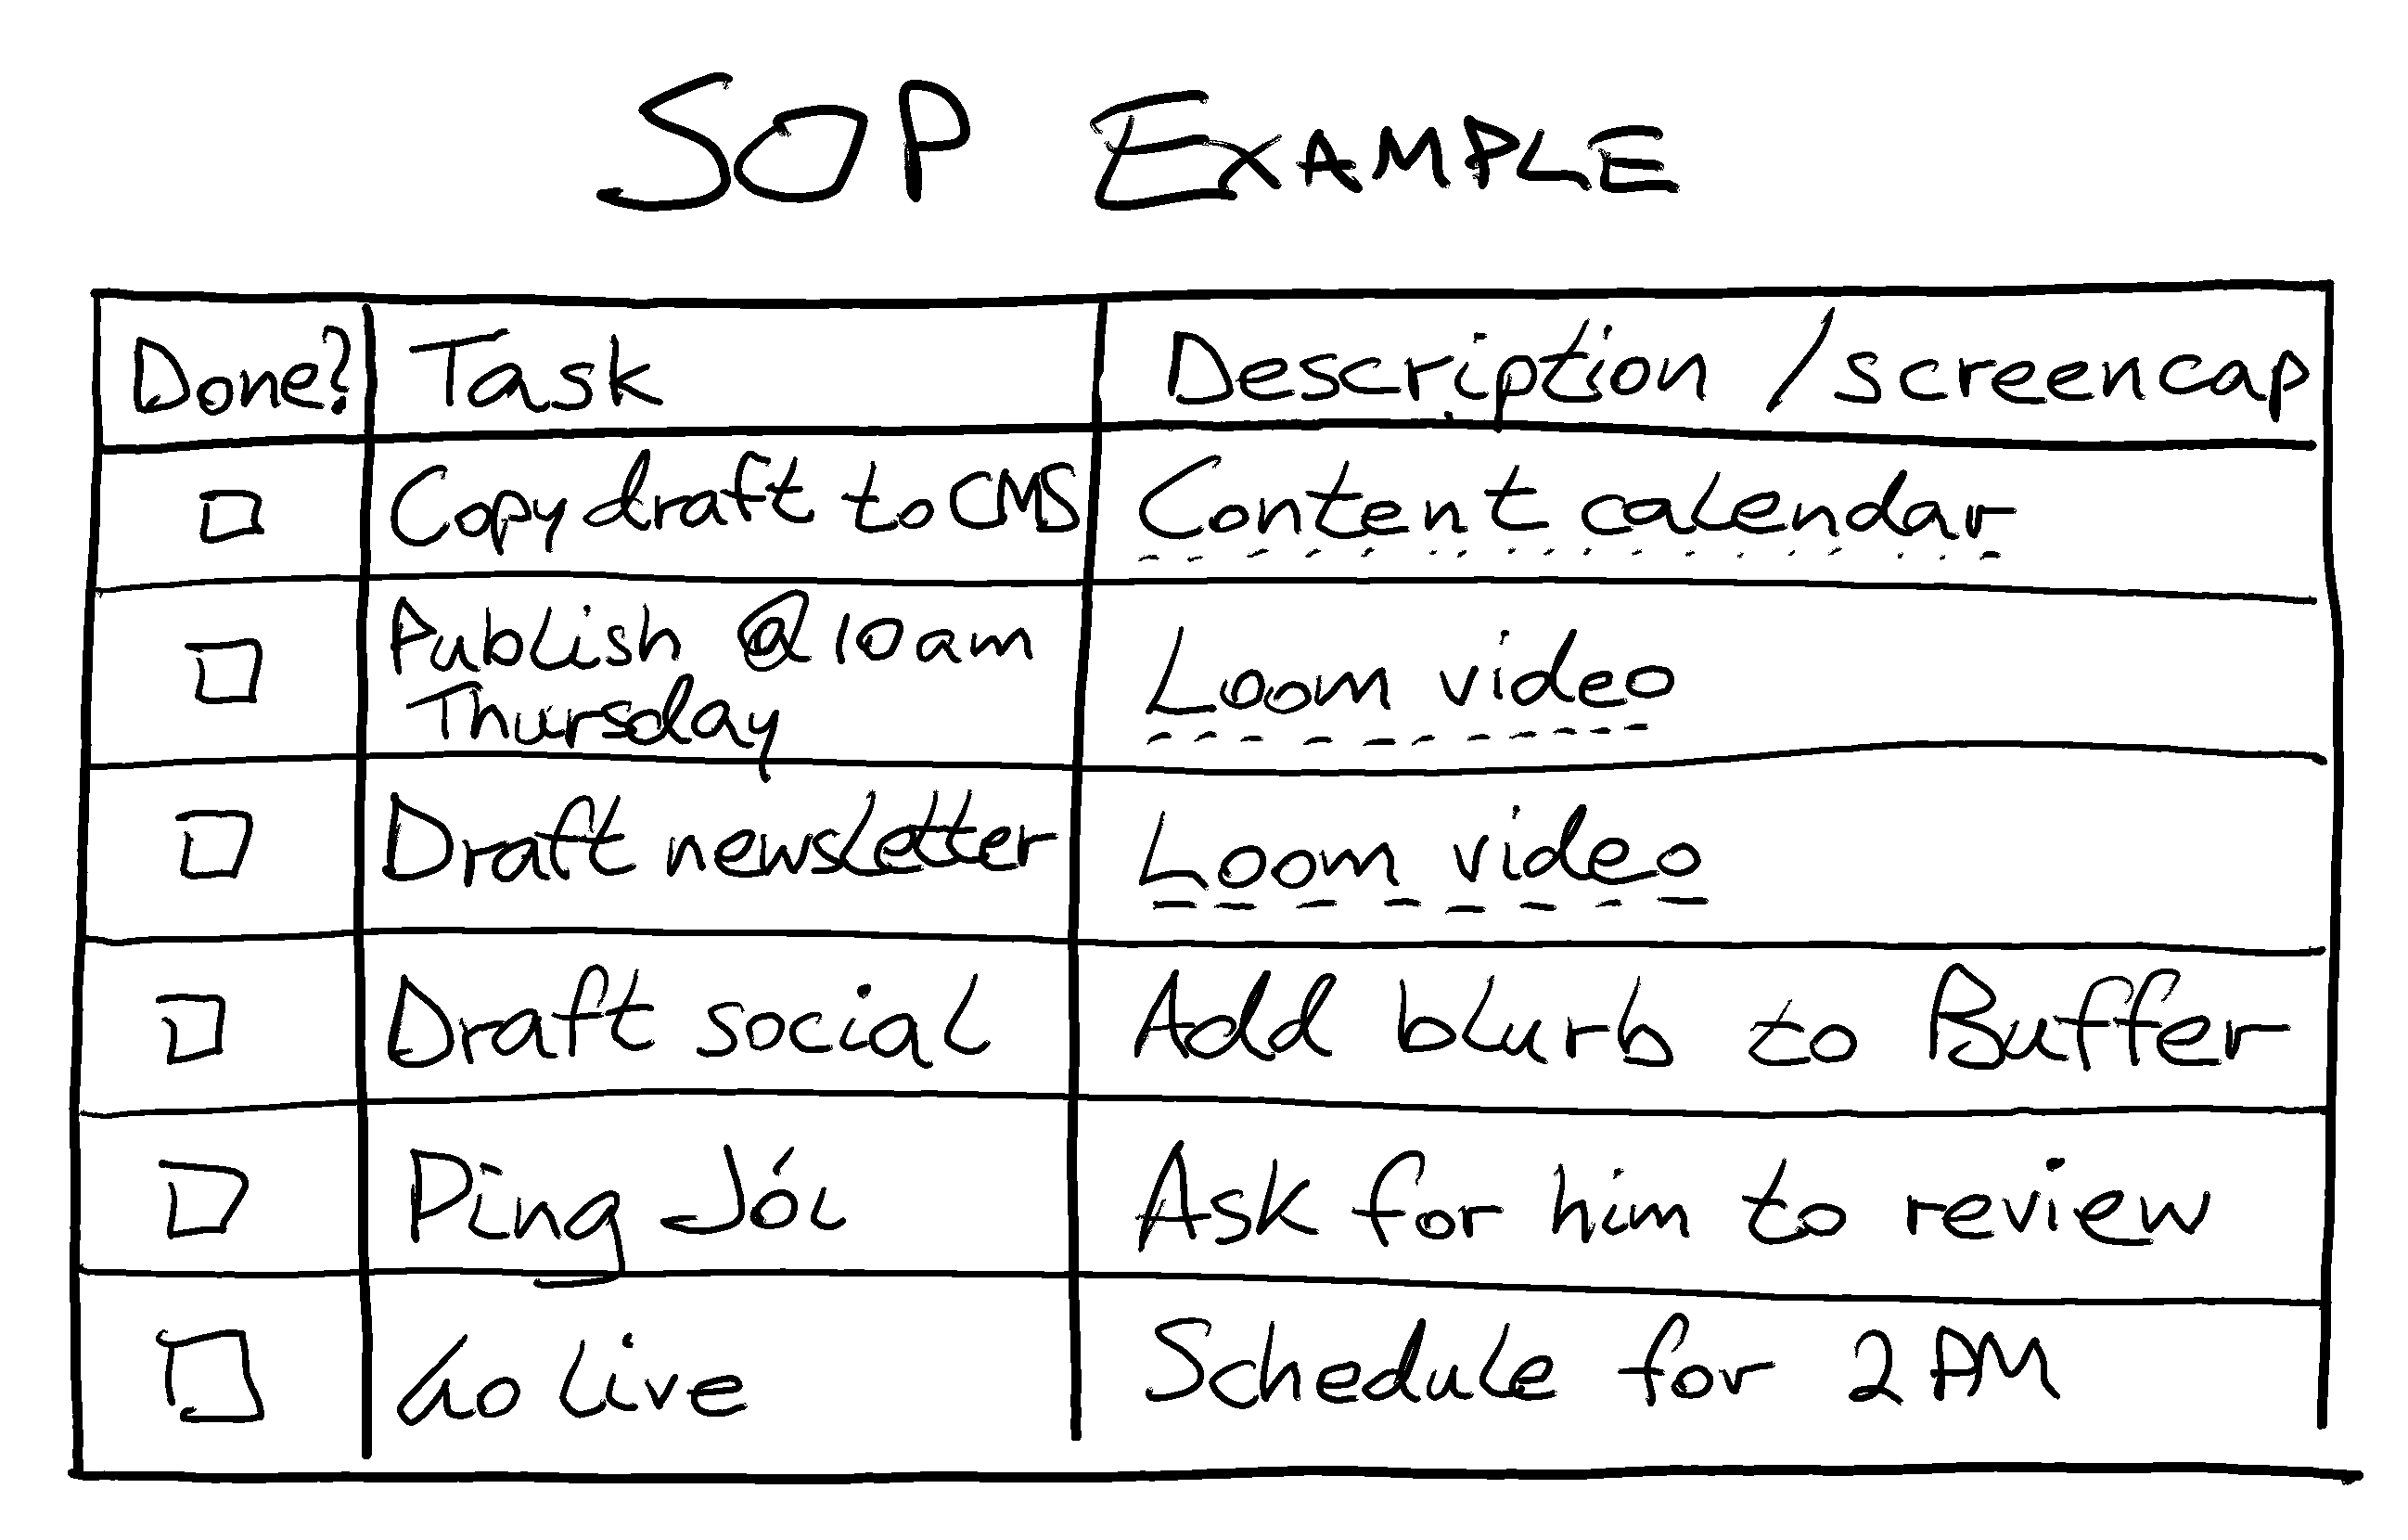 SOP EXAMPLE
Done? Task Description / screencap
Copy draft to CMS Content calendar
Publish @ 10 am
Thursday Loom video
Draft newsletter Loom video
Draft social Add blurb to Buffer
Ping Jói Ask for him to review
Go live Schedule for 2 AM